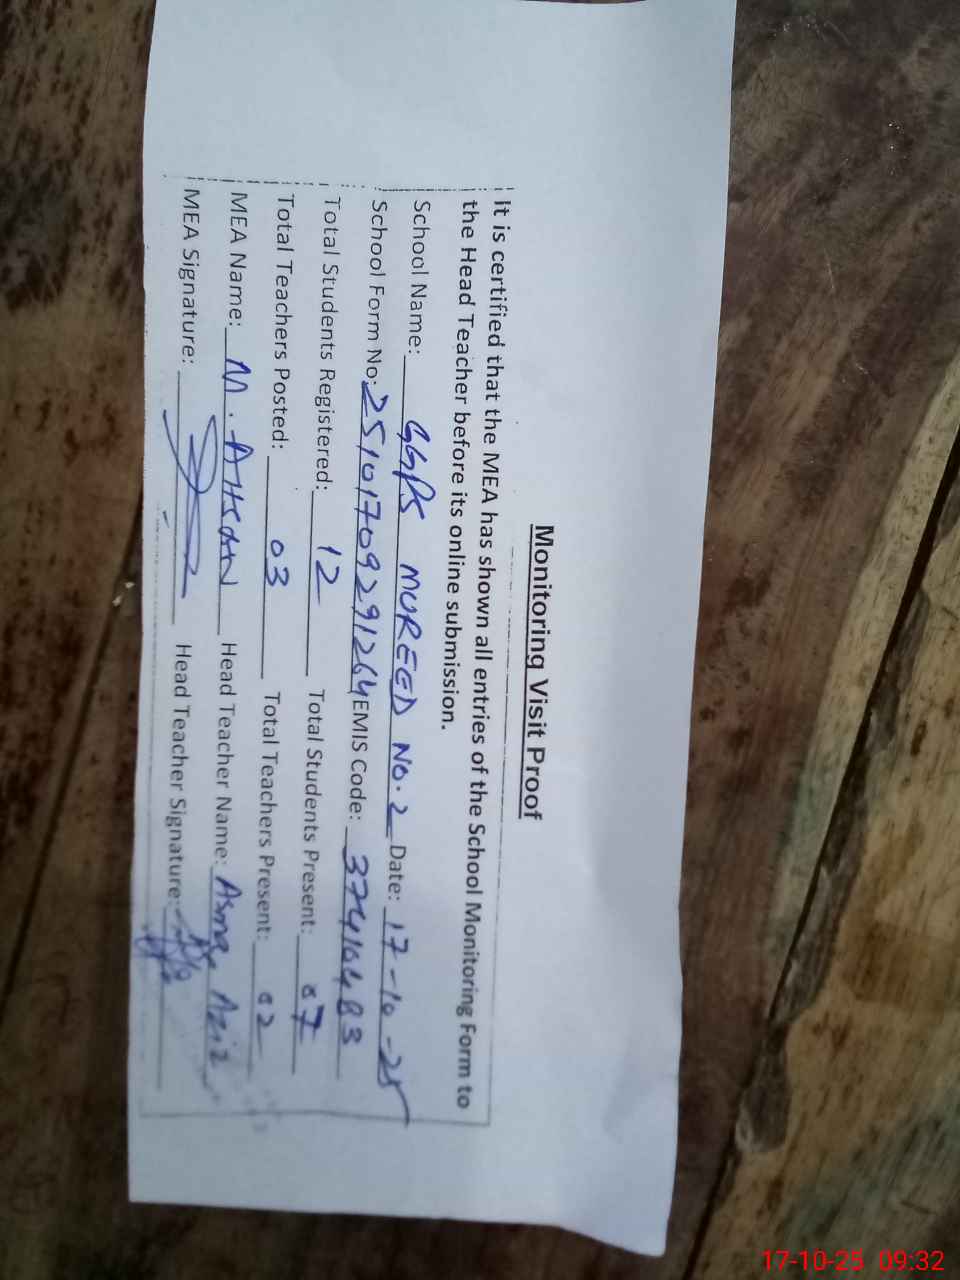 Monitoring Visit Proof
It is certified that the MEA has shown all entries of the School Monitoring Form to
the Head Teacher before its online submission.
School Name: GGPS MUREED No. 2 Date: 17-10-25
School Form No: 25101709291264 EMIS Code: 37410483
Total Students Registered: 12 Total Students Present: 07
Total Teachers Posted: 03 Total Teachers Present: 02
MEA Name: M. AHSAN Head Teacher Name: Asma Aziz
MEA Signature: Head Teacher Signature:
17-10-25 09:32